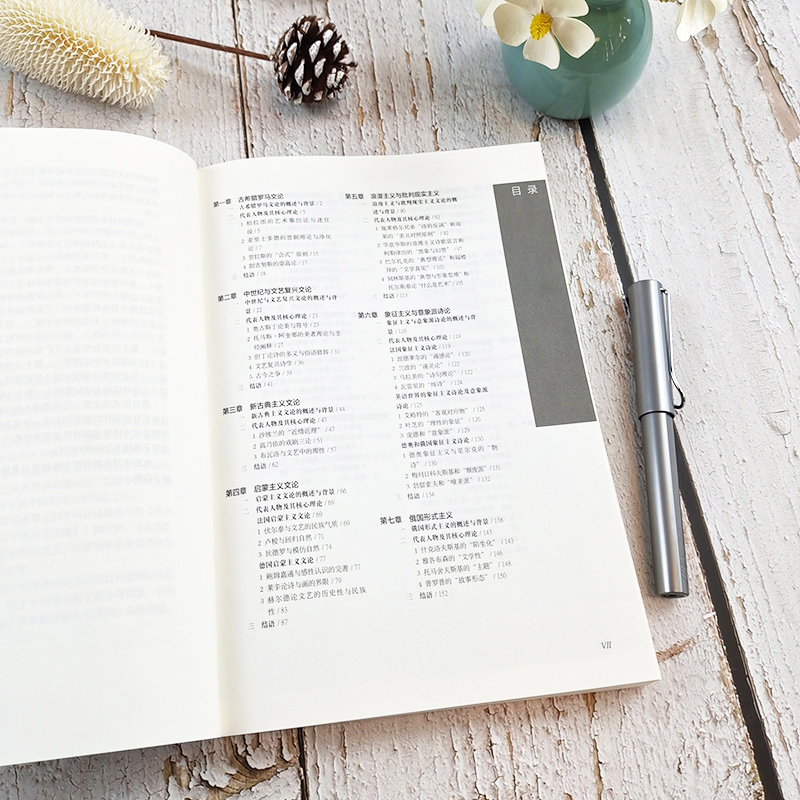 目 录
第一章 古希腊罗马文论
一 古希腊罗马文论的概述与背景 / 2
二 代表人物及其核心理论 / 5
1 柏拉图的艺术摹仿论与迷狂
说 / 5
2 亚里士多德的悲剧理论与净化
论 / 7
3 贺拉斯的“合式”原则 / 15
4 朗吉努斯的崇高论 / 17
三 结语 / 18
第二章 中世纪与文艺复兴文论
一 中世纪与文艺复兴文论的概述与背
景 / 22
二 代表人物及其核心理论 / 23
1 奥古斯丁论美与符号 / 23
2 托马斯·阿奎那的美者理论与圣
经阐释 / 27
3 但丁论诗的多义与俗语修辞 / 31
4 文艺复兴诗学 / 36
5 古今之争 / 39
三 结语 / 41
第三章 新古典主义文论
一 新古典主义文论的概述与背景 / 44
二 代表人物及其核心理论 / 47
1 沙坡兰的“近情近理” / 47
2 高乃依的戏剧三论 / 51
3 布瓦洛与文艺中的理性 / 57
三 结语 / 62
第四章 启蒙主义文论
一 启蒙主义文论的概述与背景 / 66
二 代表人物及其核心理论 / 69
法国启蒙主义文论 / 69
1 伏尔泰与文艺的民族气质 / 69
2 卢梭与回归自然 / 71
3 狄德罗与模仿自然 / 74
德国启蒙主义文论 / 77
1 鲍姆嘉通与感性认识的完善 / 77
2 莱辛论诗与画的界限 / 79
3 赫尔德论文艺的历史性与民族
性 / 83
三 结语 / 87
第五章 浪漫主义与批判现实主义
一 浪漫主义与批判现实主义文论的概
述与背景 / 90
二 代表人物及其核心理论 / 92
1 施莱格尔兄弟“诗的反讽”和雨
果的“美丑对照原则” / 92
2 华兹华斯的浪漫主义诗歌宣言和
柯勒律治的“想象与幻想” / 97
3 巴尔扎克的“典型理论”和福楼
拜的“文学真实” / 101
4 别林斯基的“典型与形象思维”和
托尔斯泰论“什么是艺术” / 105
三 结语 / 113
第六章 象征主义与意象派诗论
一 象征主义与意象派诗论的概述与背
景 / 116
二 代表人物及其核心理论 / 119
法国象征主义诗论 / 119
1 波德莱尔的“通感论” / 120
2 兰波的“通灵论” / 122
3 马拉美的“诗句理论” / 122
4 瓦雷里的“纯诗” / 124
英语世界的象征主义诗论及意象派
诗论 / 125
1 艾略特的“客观对应物” / 125
2 叶芝的“理性的象征” / 126
3 庞德和“意象派” / 129
德奥和俄国象征主义诗论 / 130
1 德奥象征主义与里尔克的“物
诗” / 130
2 梅列日科夫斯基和“颓废派” / 131
3 勃留索夫和“唯美派” / 132
三 结语 / 134
第七章 俄国形式主义
一 俄国形式主义的概述与背景 / 138
二 代表人物及其核心理论 / 143
1 什克洛夫斯基的“陌生化” / 143
2 雅各布森的“文学性” / 146
3 托马舍夫斯基的“主题” / 148
4 普罗普的“故事形态” / 150
三 结语 / 152
VII